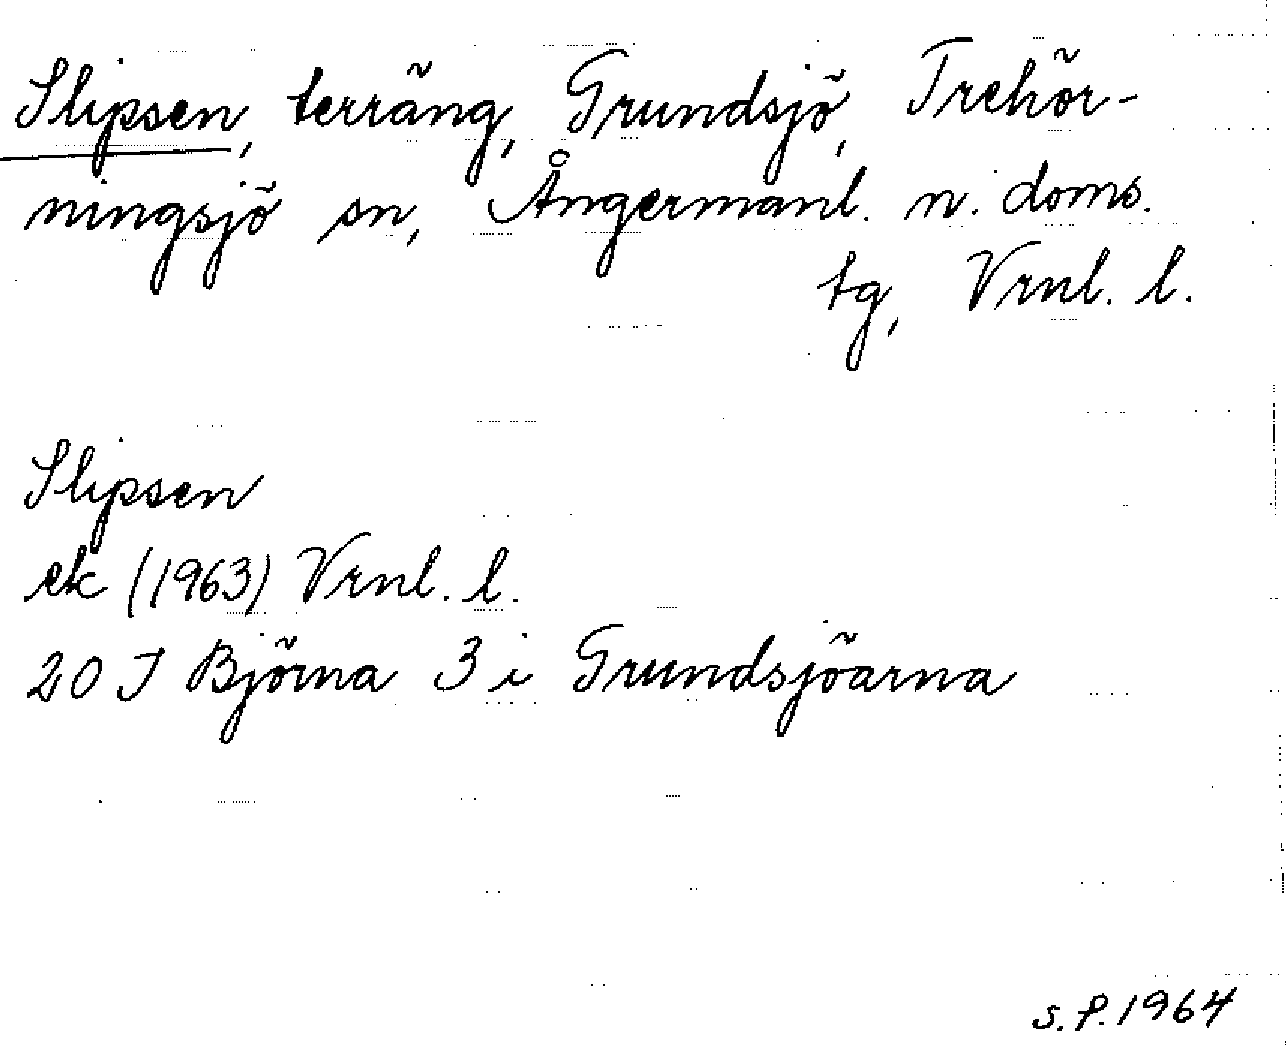 Slipsen, terräng, Grundsjö, Trehör-
ningsjö sn, Ångermanl. n. doms.
tg, Vrnl. l.
Slipsen
ek (1963) Vrnl. l.
20 J Björna 3 i Grundsjöarna
S.P. 1964